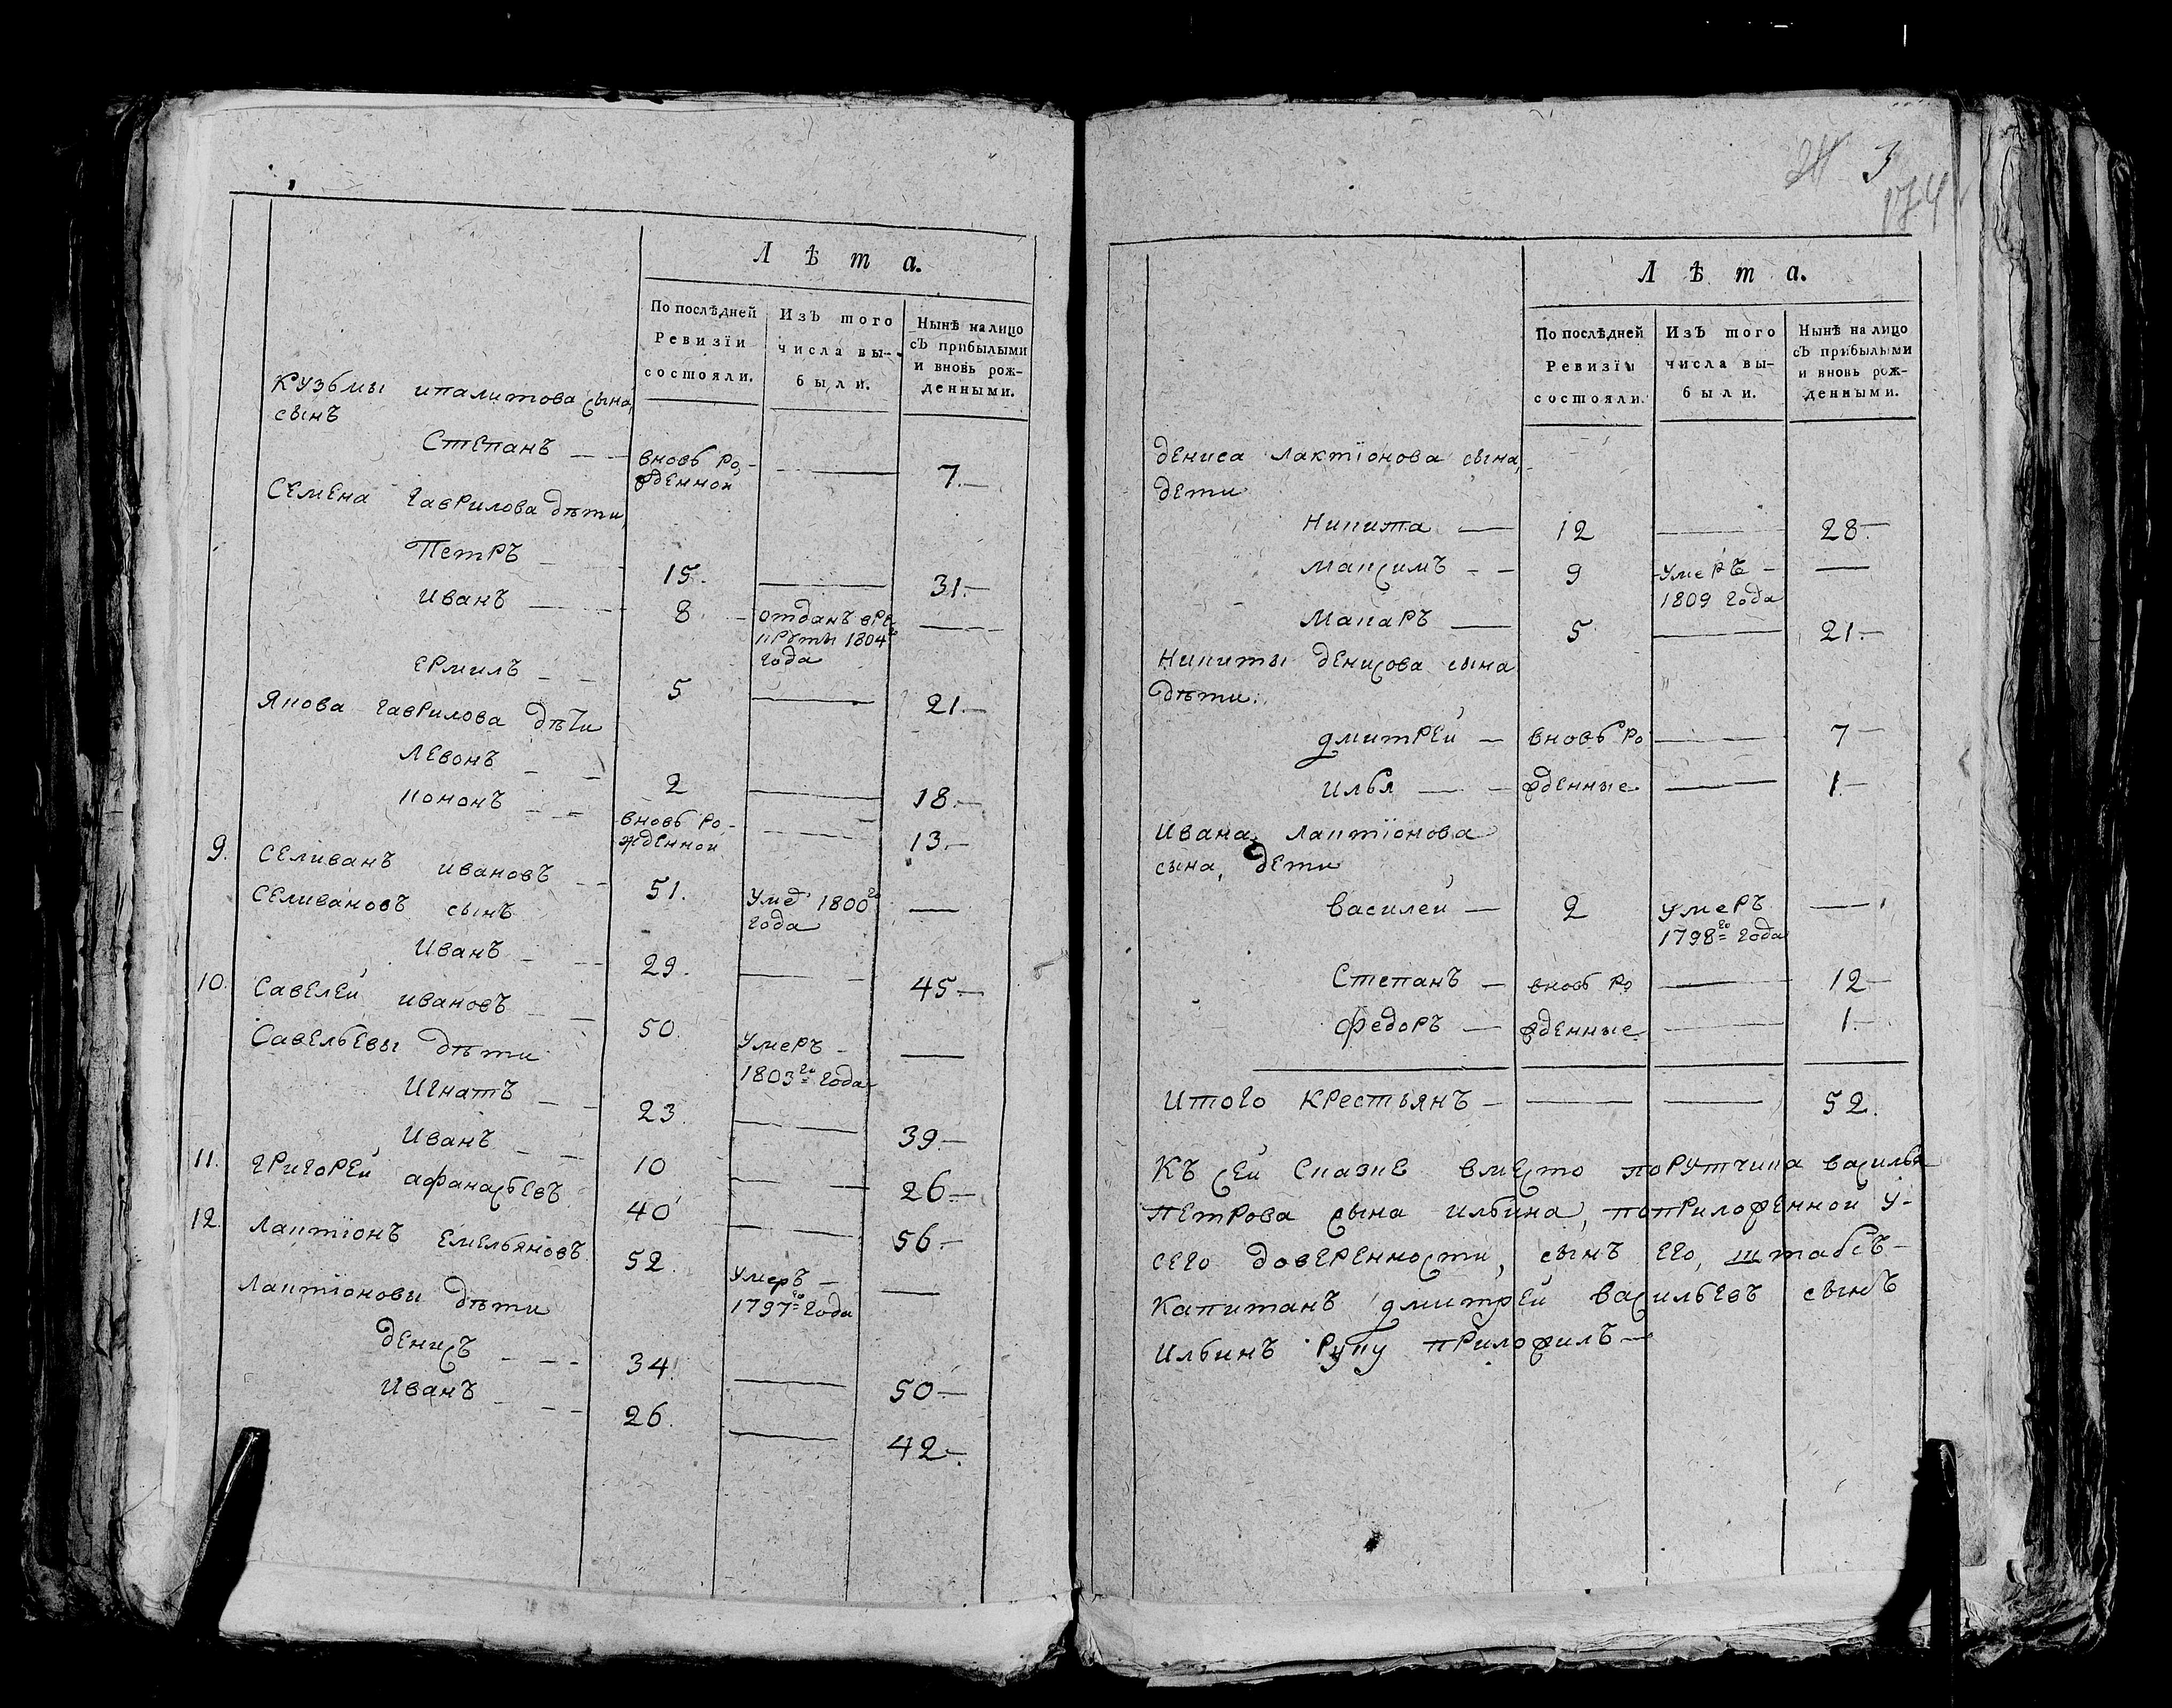 Лѣта.
По послѣдней
Ревизïи
состояли.
Изъ того
числа вы-
были.
Нынѣ на лицо
съ прибылыми
и вновь рож-
денными.
Кузьмы ипалитова сына,
сынъ
Степанъ — вновь ро- — 7.—
жденной
Семена Гаврилова дѣти
Петръ — 15. — 31.—
Иванъ — 8. отданъ врѣ —
круты 1804го
года
Ермилъ — 5 — 21.—
Якова Гаврилова дѣти
Левонъ — 2 — 18.—
Кононъ — вновь ро- — 13.—
жденной
9. Селиванъ ивановъ — 51. Умер 1800го —
года
Селивановъ сынъ
Иванъ — 29. — 45.—
10. Савелей ивановъ — 50. Умеръ —
1803го года
Савельевы дѣти
Игнатъ — 23 — 39.—
Иванъ — 10 — 26.—
11. Григорей афанасьевъ 40 — 56.—
12. Лактïонъ Емельяновъ 52. Умеръ —
1797го года
Лактïоновы дѣти
Денисъ — 34. — 50.—
Иванъ — 26. — 42.—
3
174
Лѣта.
По послѣдней
Ревизïи
состояли.
Изъ того
числа вы-
были.
Нынѣ на лицо
съ прибылыми
и вновь рож-
денными.
Дениса Лактïонова сына,
дети
Никита — 12 — 28.—
Максимъ — 9 Умеръ —
1809 года
Макаръ — 5 — 21.—
Никиты Денисова сына
дѣти.
Дмитрей — вновь ро — 7 —
Илья — жденные — 1.—
Ивана, Лактïонова
сына, дети
Василей — 2 Умеръ —
1798го года
Степанъ — вновь ро — 12.—
Федоръ — жденные — 1.—
Итого крестьянъ — 52.
Къ сей сказке вместо порутчика василья
Петрова сына ильина, поприложенной у-
сего доверенности, сынъ его, штабсъ-
Капитанъ дмитрей васильевъ сынъ
Ильинъ руку приложилъ—